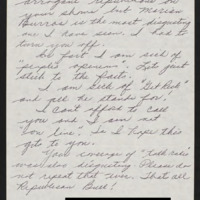 arrogant republicans on
your show but Marion
Burros is the most disgusting
one I have seen. I had to
turn you off.
At first I am sick of
"peoples opinions". Lets just
stick to the facts.
I am sick of "Get Rich"
and all he stands for.
I can't afford to call
you and I am not
"on line". So I hope this
got to you.
Your coverage of "talk radio"
was also disgusting. Please do
not repeat that ever. That's all
Republican Bull!